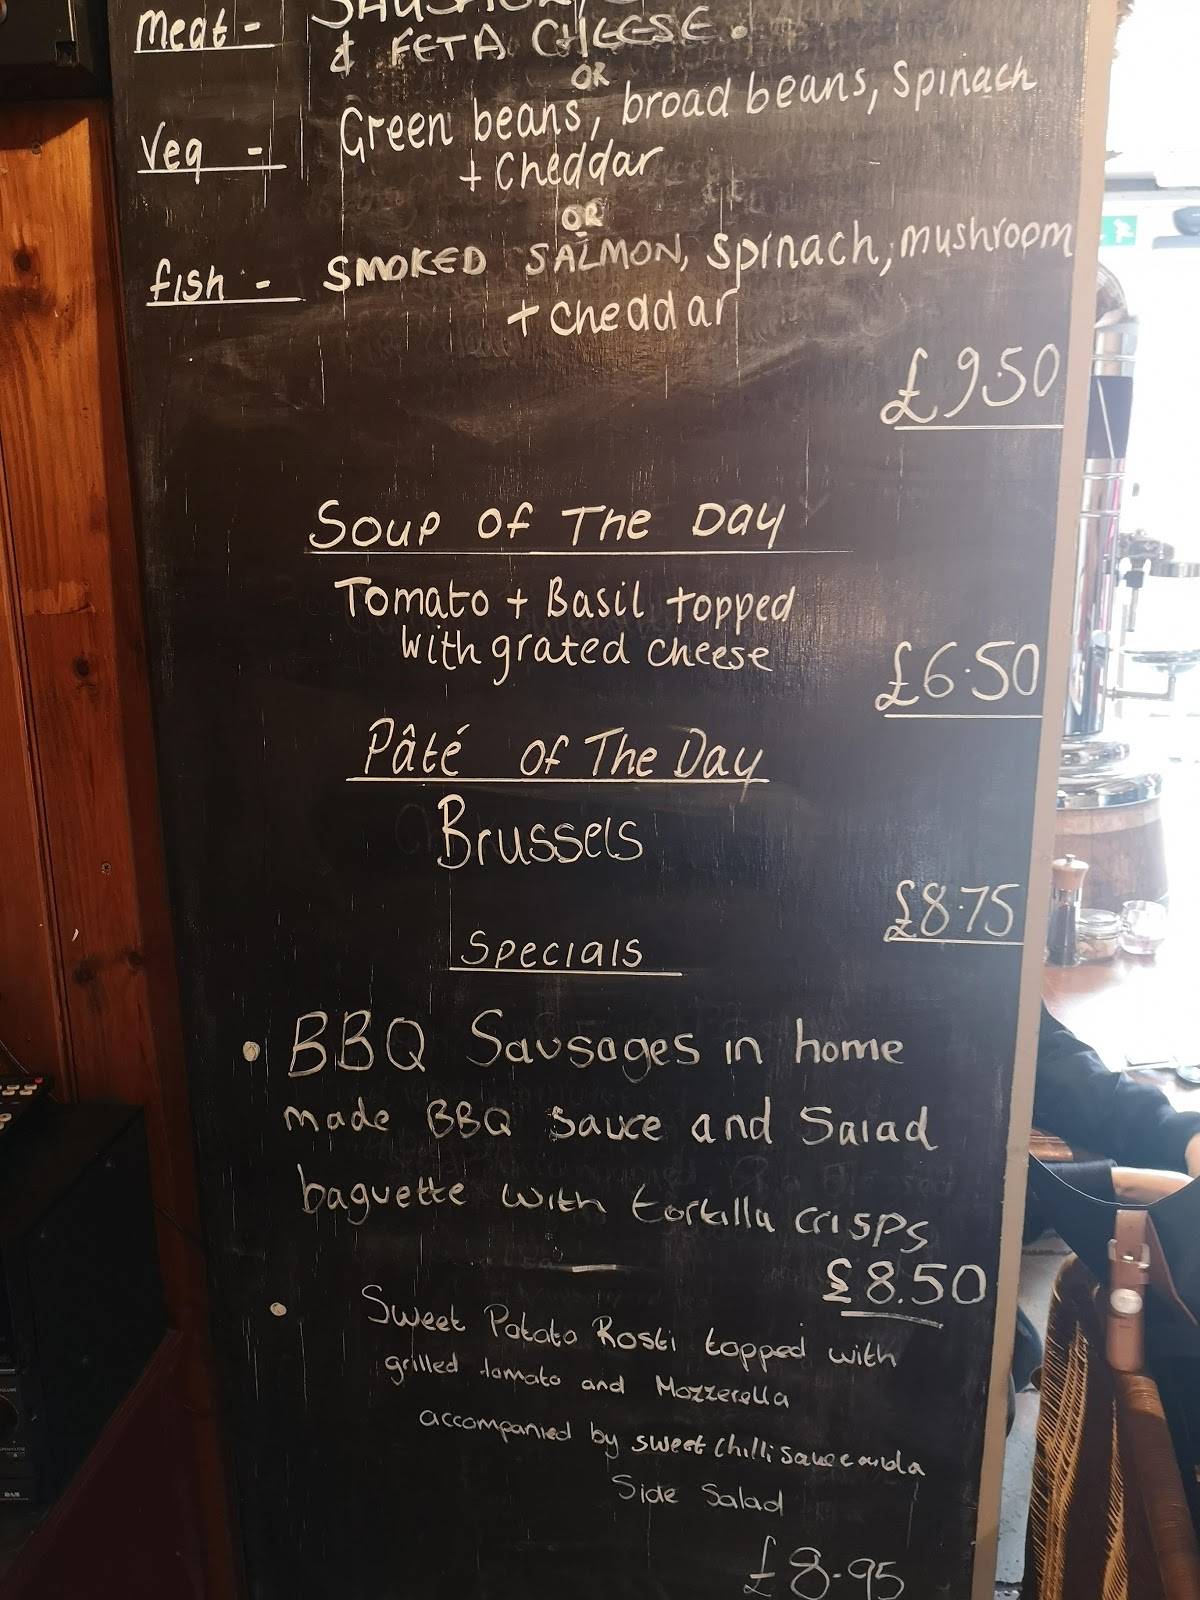 Meat -
& FETA CHEESE.
OR
Veg - Green beans, broad beans, spinach
+ Cheddar
OR
fish - SMOKED SALMON, spinach, mushroom
+ cheddar
£9.50
Soup of The Day
Tomato + Basil topped
with grated cheese
£6.50
Pâté of The Day
Brussels
£8.75
Specials
• BBQ Sausages in home
made BBQ sauce and Salad
baguette with tortilla crisps
£8.50
• Sweet Potato Rosti topped with
grilled tomato and Mozzerella
accompanied by sweet chilli sauce and a
Side Salad
£8.95